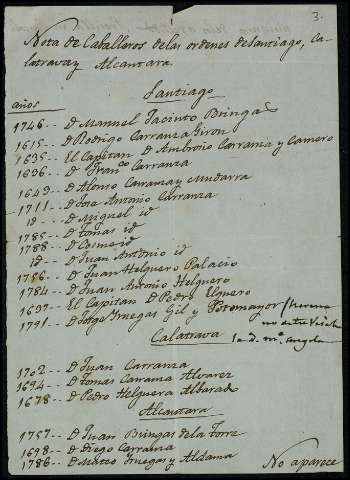 3.
Nota de Caballeros de las ordenes de Santiago, Ca-
latrava y Alcantara.
Santiago
años
1746 -- D Manuel Jacinto Bringas
1615 -- D Rodrigo Carranza Giron
1635 -- El Capitan D Ambrosio Carranza y Camero
1636 -- D Franco Carranza
1649 -- D Alonso Carranza y Mudarra
1711 -- D Jose Antonio Carranza
id -- D Miguel id
1785 -- D Tomas id
1788 -- D Cosme id
id -- D Juan Antonio id
1756 -- D Juan Helguero Palacio
1784 -- D Juan Antonio Helguero
1637 -- El Capitan D Pedro Elguero
1791 -- D Jorge Ynegas Gil y Sotomayor /
no
Calatrava
1702 -- D Juan Carranza
1694 -- D Tomas Carranza Alvarez
1678 -- D Pedro Helguera Albarado
Alcantara
1757 -- D Juan Bringas de la Torre
1698 -- D Diego Carranza
1786 -- D Mateo Ynegas y Aldama
No aparece